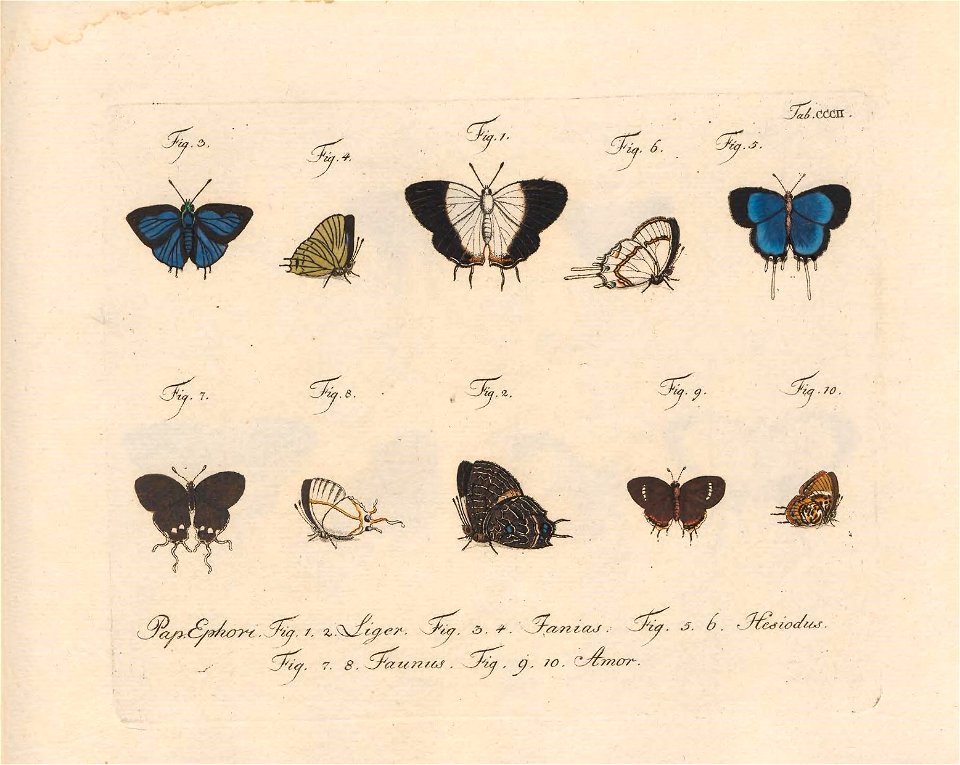 Tab. CCCII.
Fig. 3.
Fig. 4.
Fig. 1.
Fig. 6.
Fig. 5.
Fig. 7.
Fig. 8.
Fig. 2.
Fig. 9.
Fig. 10.
Pap. Ephori. Fig. 1. 2. Liger. Fig. 3. 4. Fanias. Fig. 5. 6. Hesiodus.
Fig. 7. 8. Faunus. Fig. 9. 10. Amor.